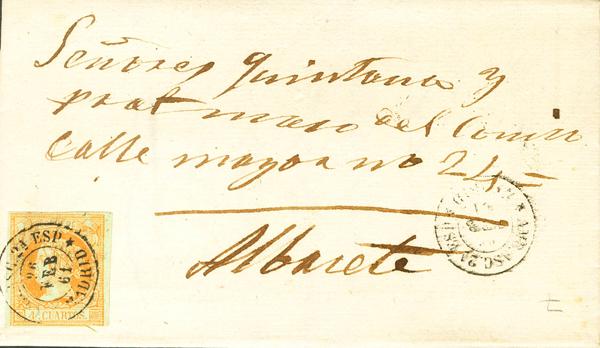 Señores Quintana y
prat maso del Comin
calle mayor nº 24=
Albacete
ESP * MADRID
26
FEB
61
4 CUARTOS.